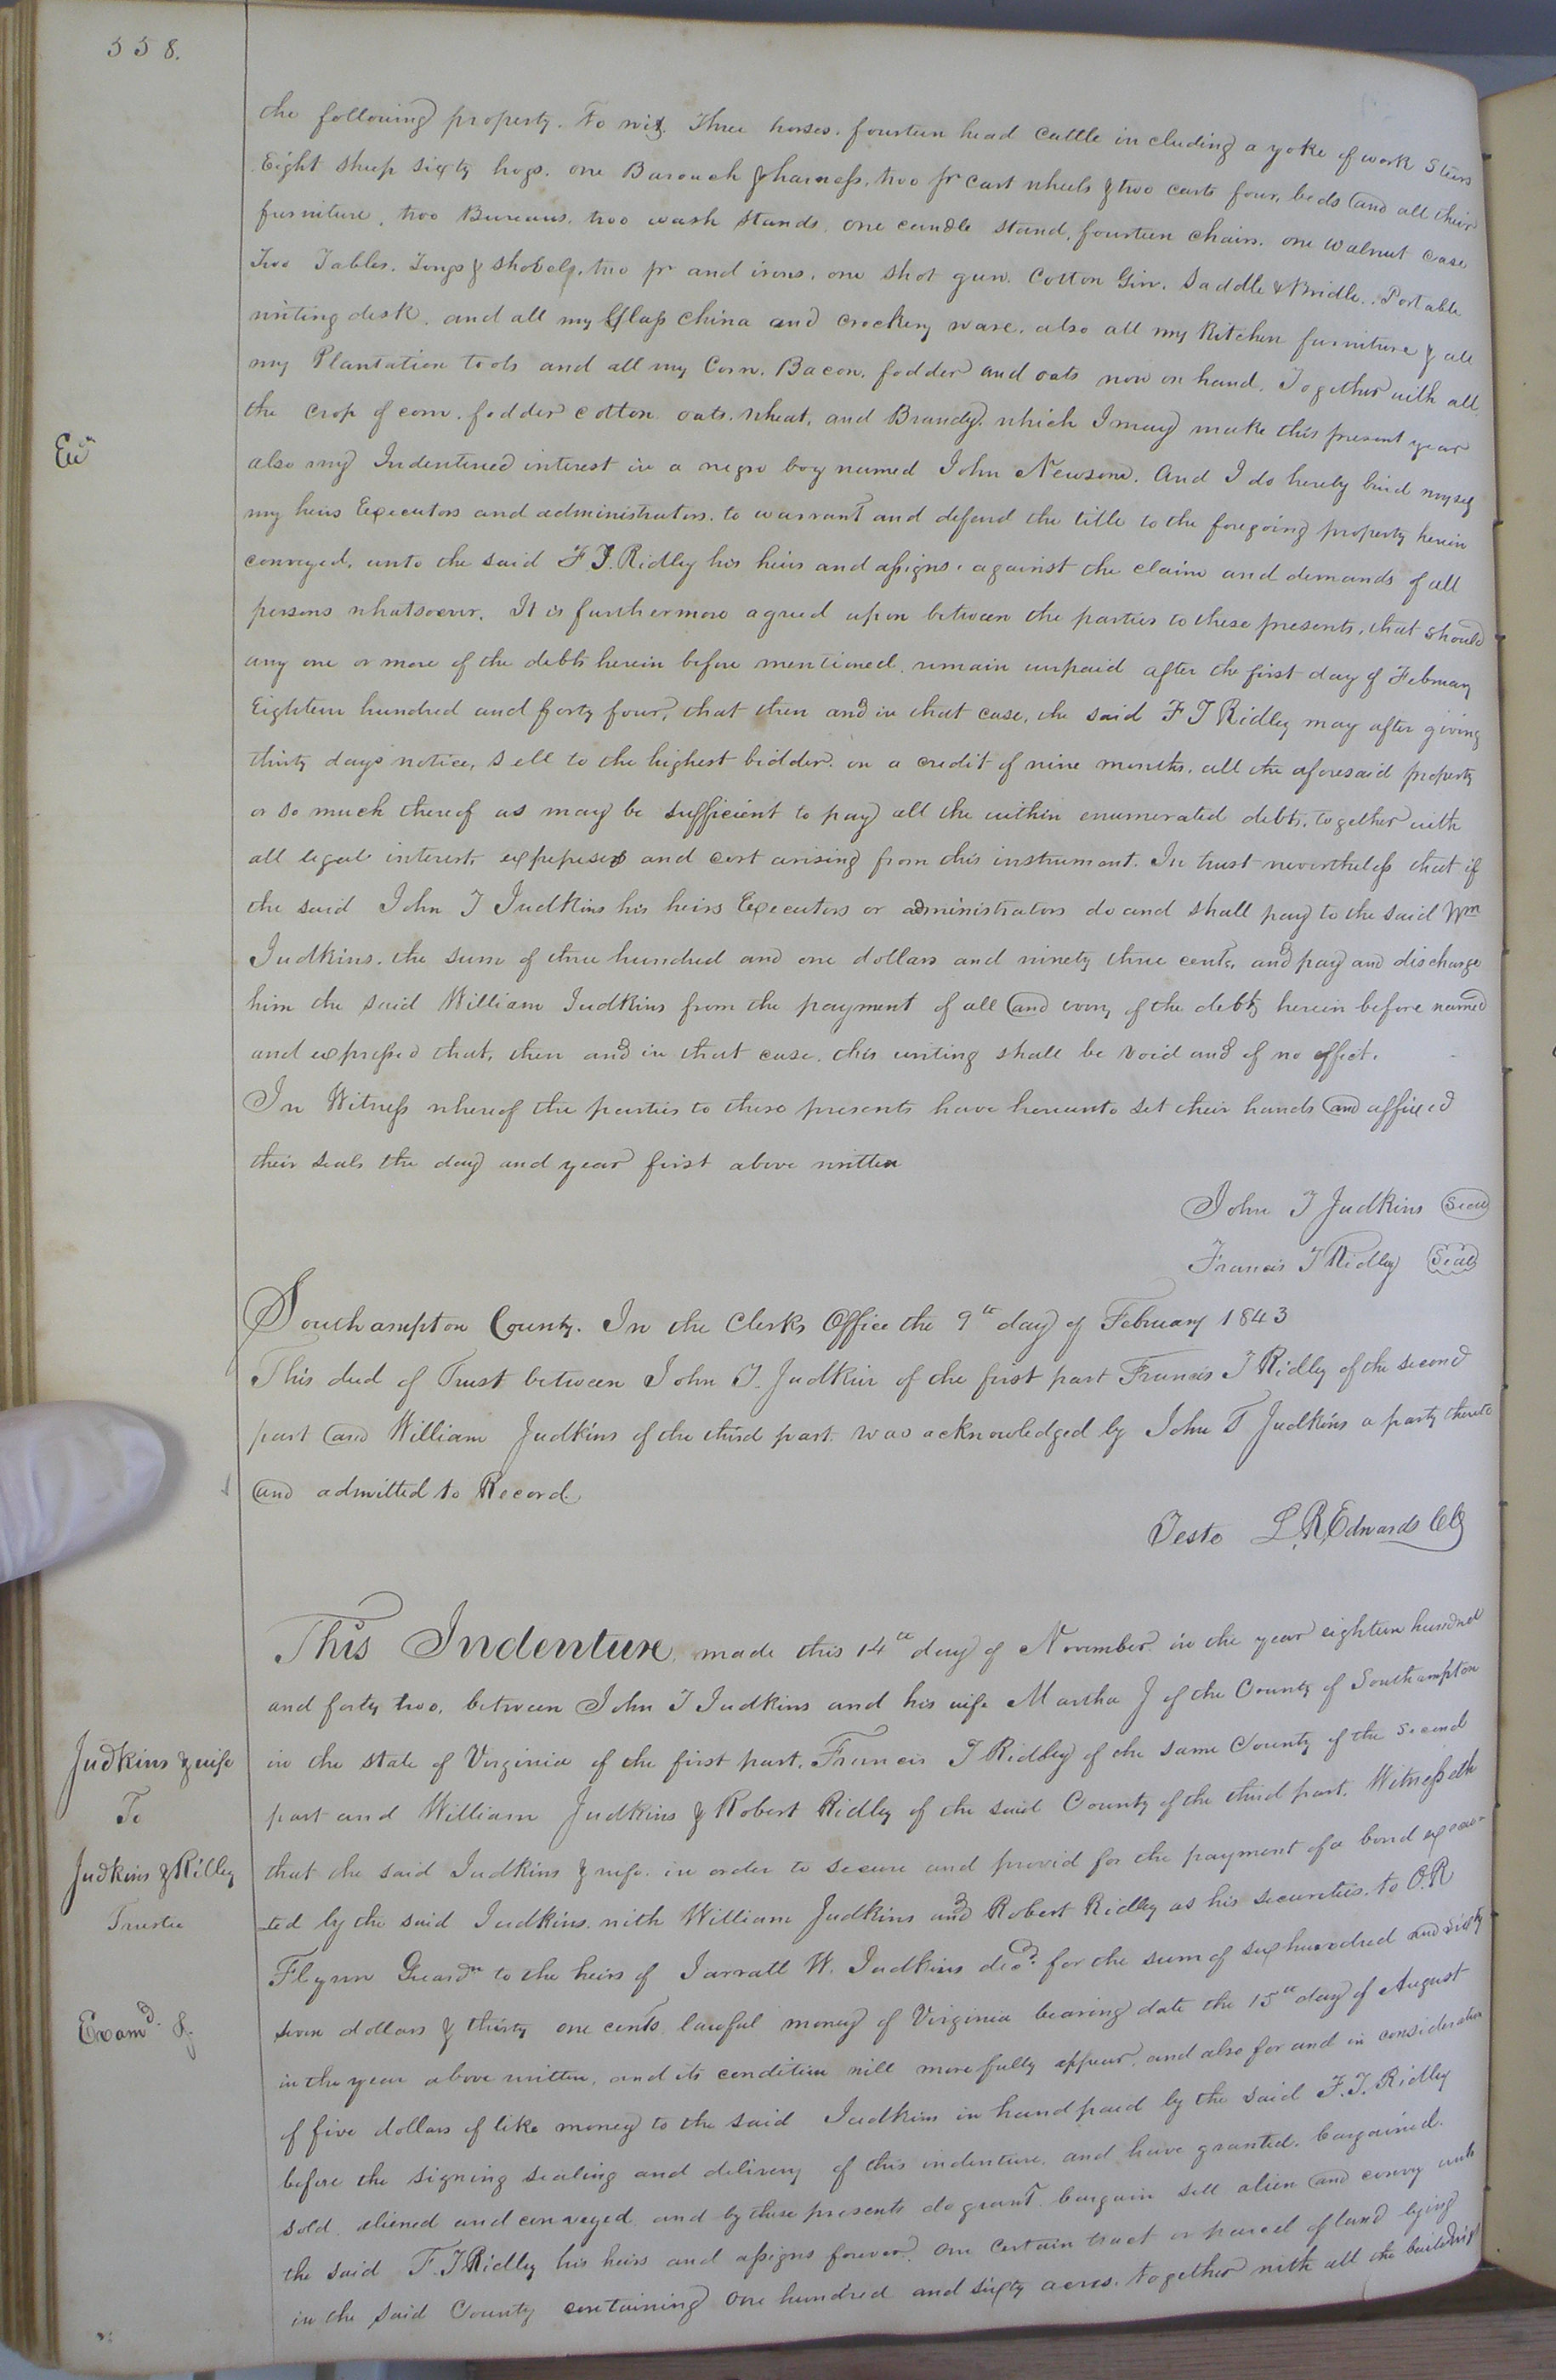 338.
the following property. To wit. Three horses. fourteen head Cattle including a yoke of work Steers
Eight sheep sixty hogs. one Barouch & harness, two pr cart wheels & two carts four, beds and all their
furniture, two Bureaus, two wash stands, one candle stand, fourteen chairs. one Walnut Case
Two Tables. Tongs & Shovels, two pr and irons, one shot gun. Cotton Gin. Saddle & Bridle. Portable
writing desk. and all my Glass China and crockery ware, also all my Kitchen furniture & all
my Plantation tools and all my Corn. Bacon, fodder and oats now on hand. Together with all
the crop of corn. fodder cotton oats. wheat, and Brandy. which I may make this present year
also my Indentured interest in a negro boy named John Newsom. And I do hereby bind myself
my heirs Executors and administrators. to warrant and defend the title to the foregoing property herein
conveyed, unto the said F T. Ridley his heirs and assigns. against the claim and demands of all
persons whatsoever. It is furthermore agreed upon between the parties to these presents, that should
any one or more of the debts herein before mentioned. remain unpaid after the first day of February
Eighteen hundred and forty four, that then and in that case, the said F T Ridley may after giving
thirty days notice, sell to the highest bidder. on a credit of nine months. all the aforesaid property
or so much thereof as may be sufficient to pay all the within enumerated debts. together with
all legal interest and cost arising from this instrument. In trust nevertheless that if
the said John T Judkins his heirs Executors or administrators do and shall pay to the said Wm
Judkins. the sum of three hundred and one dollars and ninety three cents, and pay and discharge
him the said William Judkins from the payment of all and every of the debts herein before named
and expressed that, then and in that case. this writing shall be void and of no effect.
In Witness whereof the parties to these presents have hereunto set their hands and affixed
their seals the day and year first above written
John T Judkins Seal
Francis T Ridley Seal
Southampton County. In the Clerks Office the 9th day of February 1843
This deed of Trust between John T. Judkins of the first part Francis T Ridley of the second
part and William Judkins of the third part. was acknowledged by John T Judkins a party thereto
and admitted to Record.
Teste L. R. Edwards Clk
This Indenture, made this 14th day of November. in the year eighteen hundred
and forty two, between John T Judkins and his wife Martha J of the County of Southampton
Judkins & wife
in the state of Virginia of the first part. Francis T Ridley of the same County of the second
To
part and William Judkins & Robert Ridley of the said County of the third part. Witnesseth
Judkins & Ridley
that the said Judkins & wife. in order to secure and provid for the payment of a bond execu-
Trustee
ted by the said Judkins. with William Judkins and Robert Ridley as his securities. to O.R
Flynn Guardn to the heirs of Jarratt W. Judkins decd. for the sum of six hundred and sixty
Examd.
seven dollars & thirty one cents lawful money of Virginia bearing date the 15th day of August
in the year above written, and its condition will more fully appear, and also for and in consideration
of five dollars of like money to the said Judkins in hand paid by the said F. T. Ridley
before the signing sealing and delivery of this indenture. and have granted. bargained.
sold. aliened and conveyed and by these presents do grant. bargain sell alien and convey unto
the said F. T Ridley his heirs and assigns forever. one certain tract or parcel of land lying
in the said County containing One hundred and sixty acres. together with all the buildings